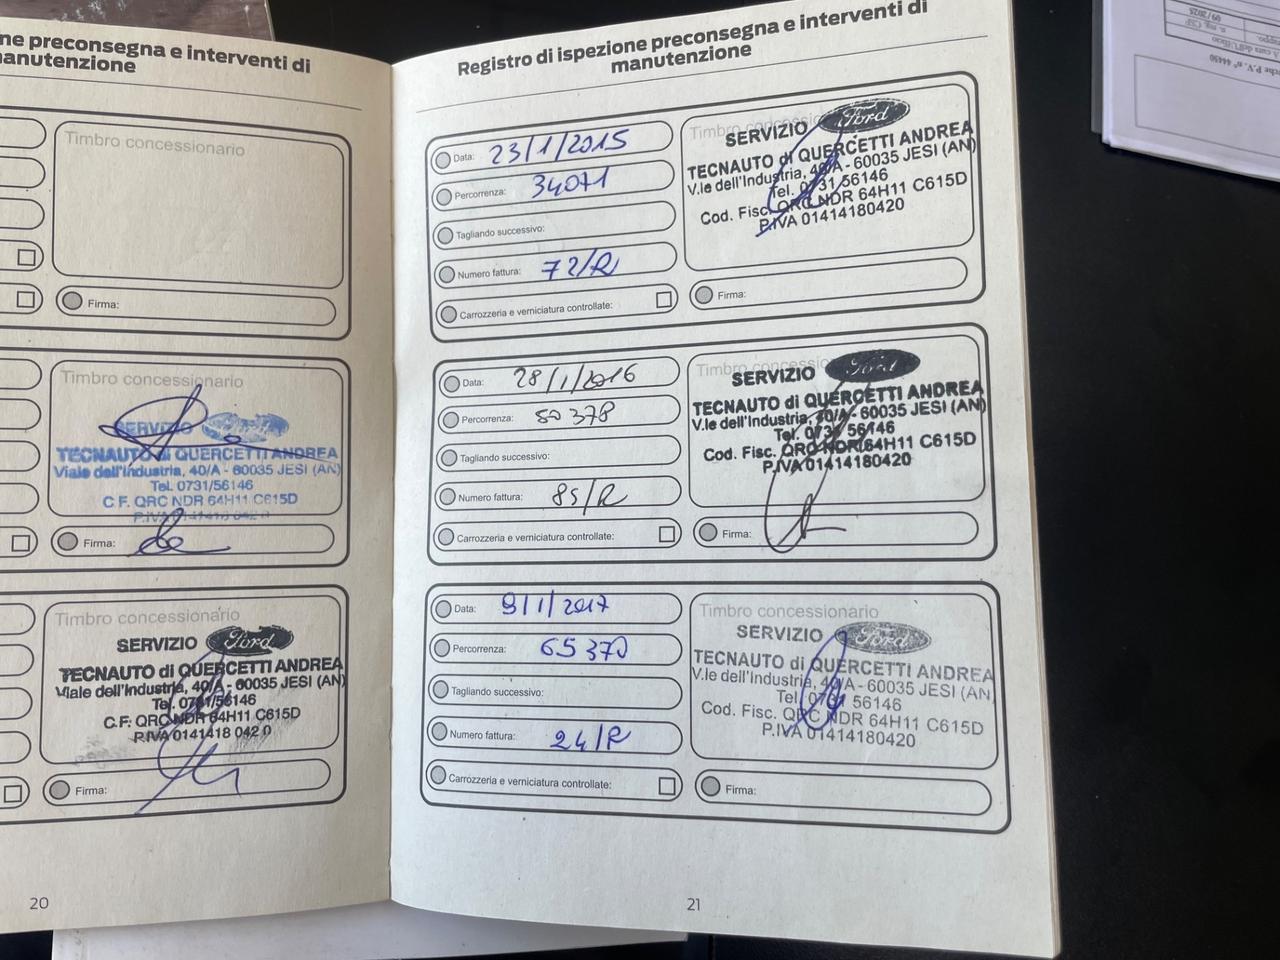 ne preconsegna e interventi di
anutenzione
Timbro concessionario
Firma:
Timbro concessionario
SERVIZIO
TECNAUTO di QUERCETTI ANDREA
Viale dell'Industria, 40/A - 60035 JESI (AN)
Tel. 0731/56146
C F. QRC NDR 64H11 C615D
P.IVA 0141418 042 0
Firma:
Timbro concessionario
SERVIZIO Ford
TECNAUTO di QUERCETTI ANDREA
Viale dell'Industria, 40/A - 60035 JESI (AN)
Tel. 0731/56146
C.F. QRC NDR 64H11 C615D
P.IVA 0141418 042 0
Firma:
20
Registro di ispezione preconsegna e interventi di
manutenzione
Data: 23/1/2015
Percorrenza: 34071
Tagliando successivo:
Numero fattura: 72/R
Carrozzeria e verniciatura controllate:
Timbro concessio
SERVIZIO Ford
TECNAUTO di QUERCETTI ANDREA
V.le dell'Industria, 40/A - 60035 JESI (AN)
Tel. 0731/56146
Cod. Fisc. QRC NDR 64H11 C615D
P.IVA 01414180420
Firma:
Data: 28/1/2016
Percorrenza: 50 378
Tagliando successivo:
Numero fattura: 85/R
Carrozzeria e verniciatura controllate:
Timbro concessio
SERVIZIO Ford
TECNAUTO di QUERCETTI ANDREA
V.le dell'Industria, 40/A - 60035 JESI (AN)
Tel. 0731 56146
Cod. Fisc. QRC NDR 64H11 C615D
P.IVA 01414180420
Firma:
Data: 9/1/2017
Percorrenza: 65 370
Tagliando successivo:
Numero fattura: 24/R
Carrozzeria e verniciatura controllate:
Timbro concessionario
SERVIZIO Ford
TECNAUTO di QUERCETTI ANDREA
V.le dell'Industria, 40/A - 60035 JESI (AN
Tel. 0731 56146
Cod. Fisc. QRC NDR 64H11 C615D
P.IVA 01414180420
Firma:
21
09/2025
rche P.V. n° 44450